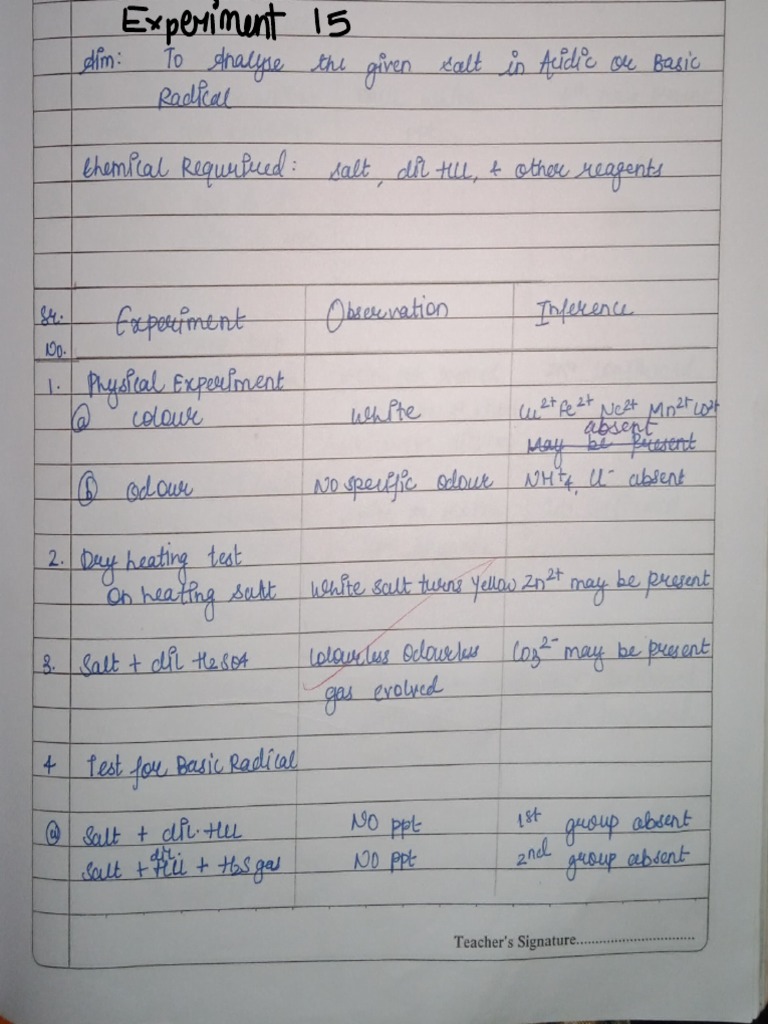 Experiment 15
Aim: To Analyse the given salt in Acidic or Basic
Radical
Chemical Requrired: salt, dil HCl, & other reagents
Sr. No. Experiment Observation Inference
1. Physical Experiment
(a) colour White Cu2+ Fe2+ Ni2+ Mn2+ Co2+
absent
May be present
(b) Odour No specific odour NH+4, Cl- absent
2. Dry heating test
On heating salt White salt turns yellow Zn2+ may be present
3. Salt + dil H2SO4 Colourless Odourless CO3 2- may be present
gas evolved
4 Test for Basic Radical
(a) Salt + dil. HCl No ppt 1st group absent
Salt + dil. HCl + H2S gas No ppt 2nd group absent
Teacher's Signature..............................